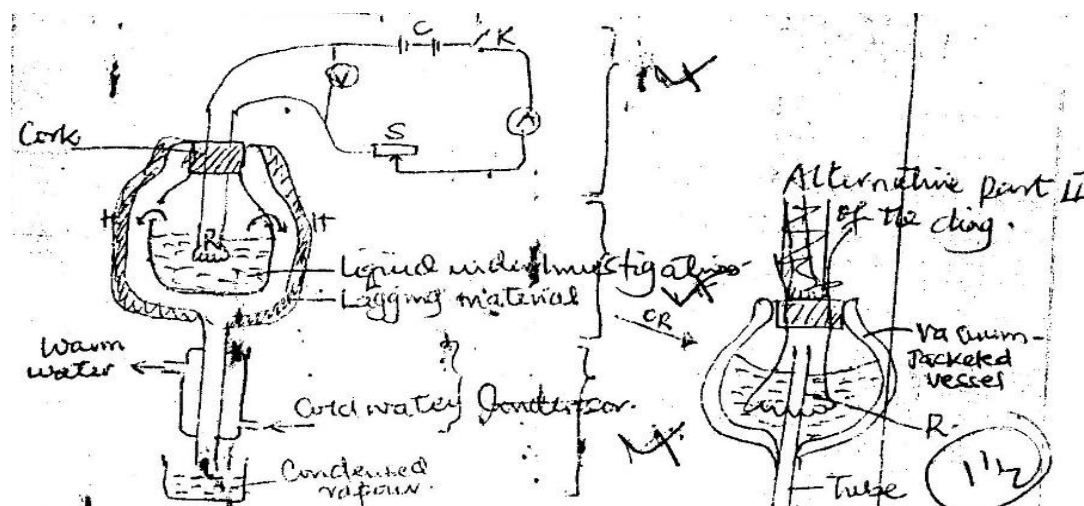 C
K
V
A
S
Cork
H
H
R
Liquid under Investigation
Lagging material
Warm
water
Cold water
Condensor.
Condensed
vapour.
OR
Alternative part II
of the diag.
Vacuum-
Jacketed
vessel
R
Tube
1½